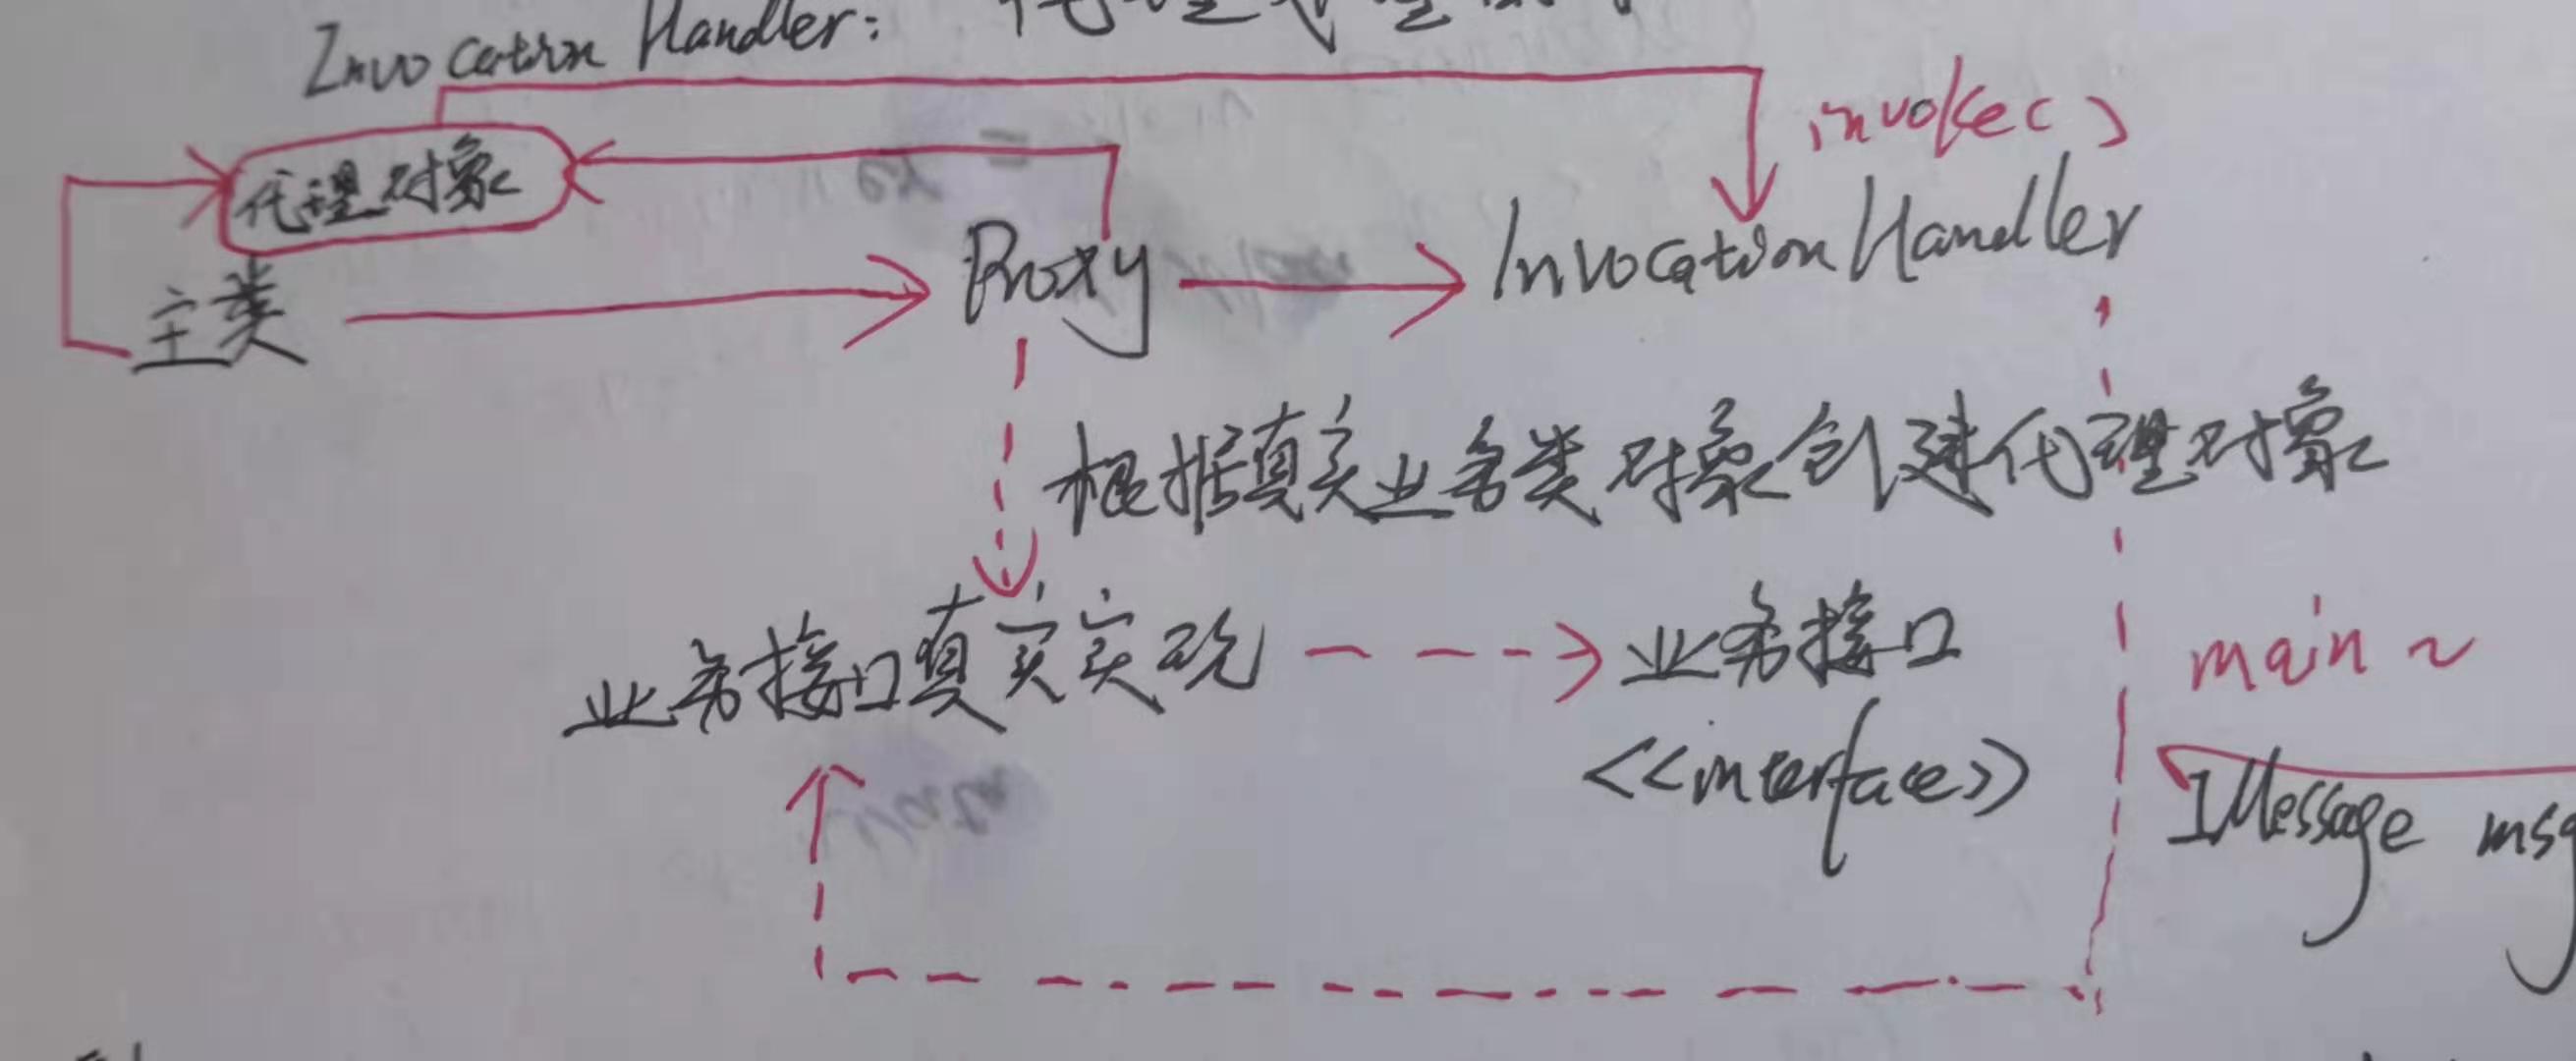 Invocation Handler:
invoke()
代理对象
Proxy
InvocationHandler
主类
根据真实业务类对象创建代理对象
业务接口真实实现
业务接口
main ~
<<interface>>
IMessage msg